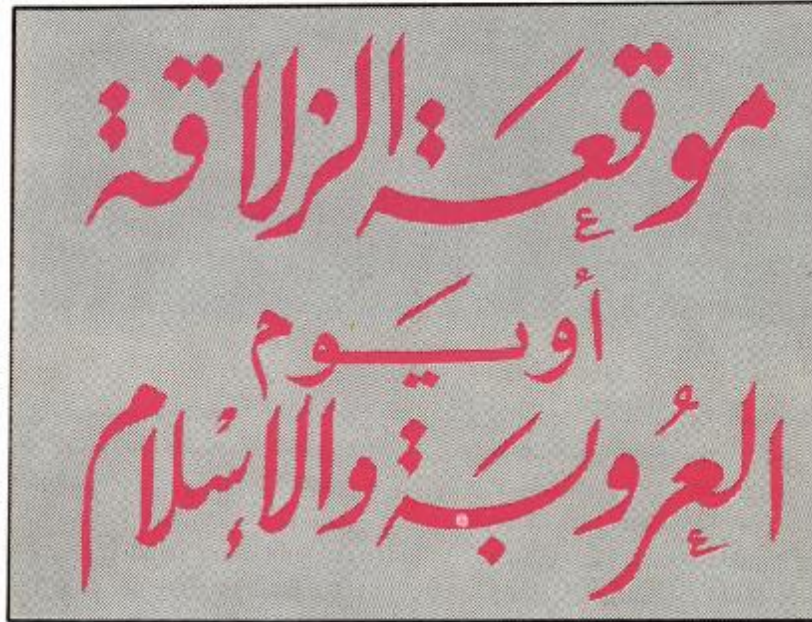 موقعَة الزلاقة
أو يَوم
العُروبَة والإسْلام